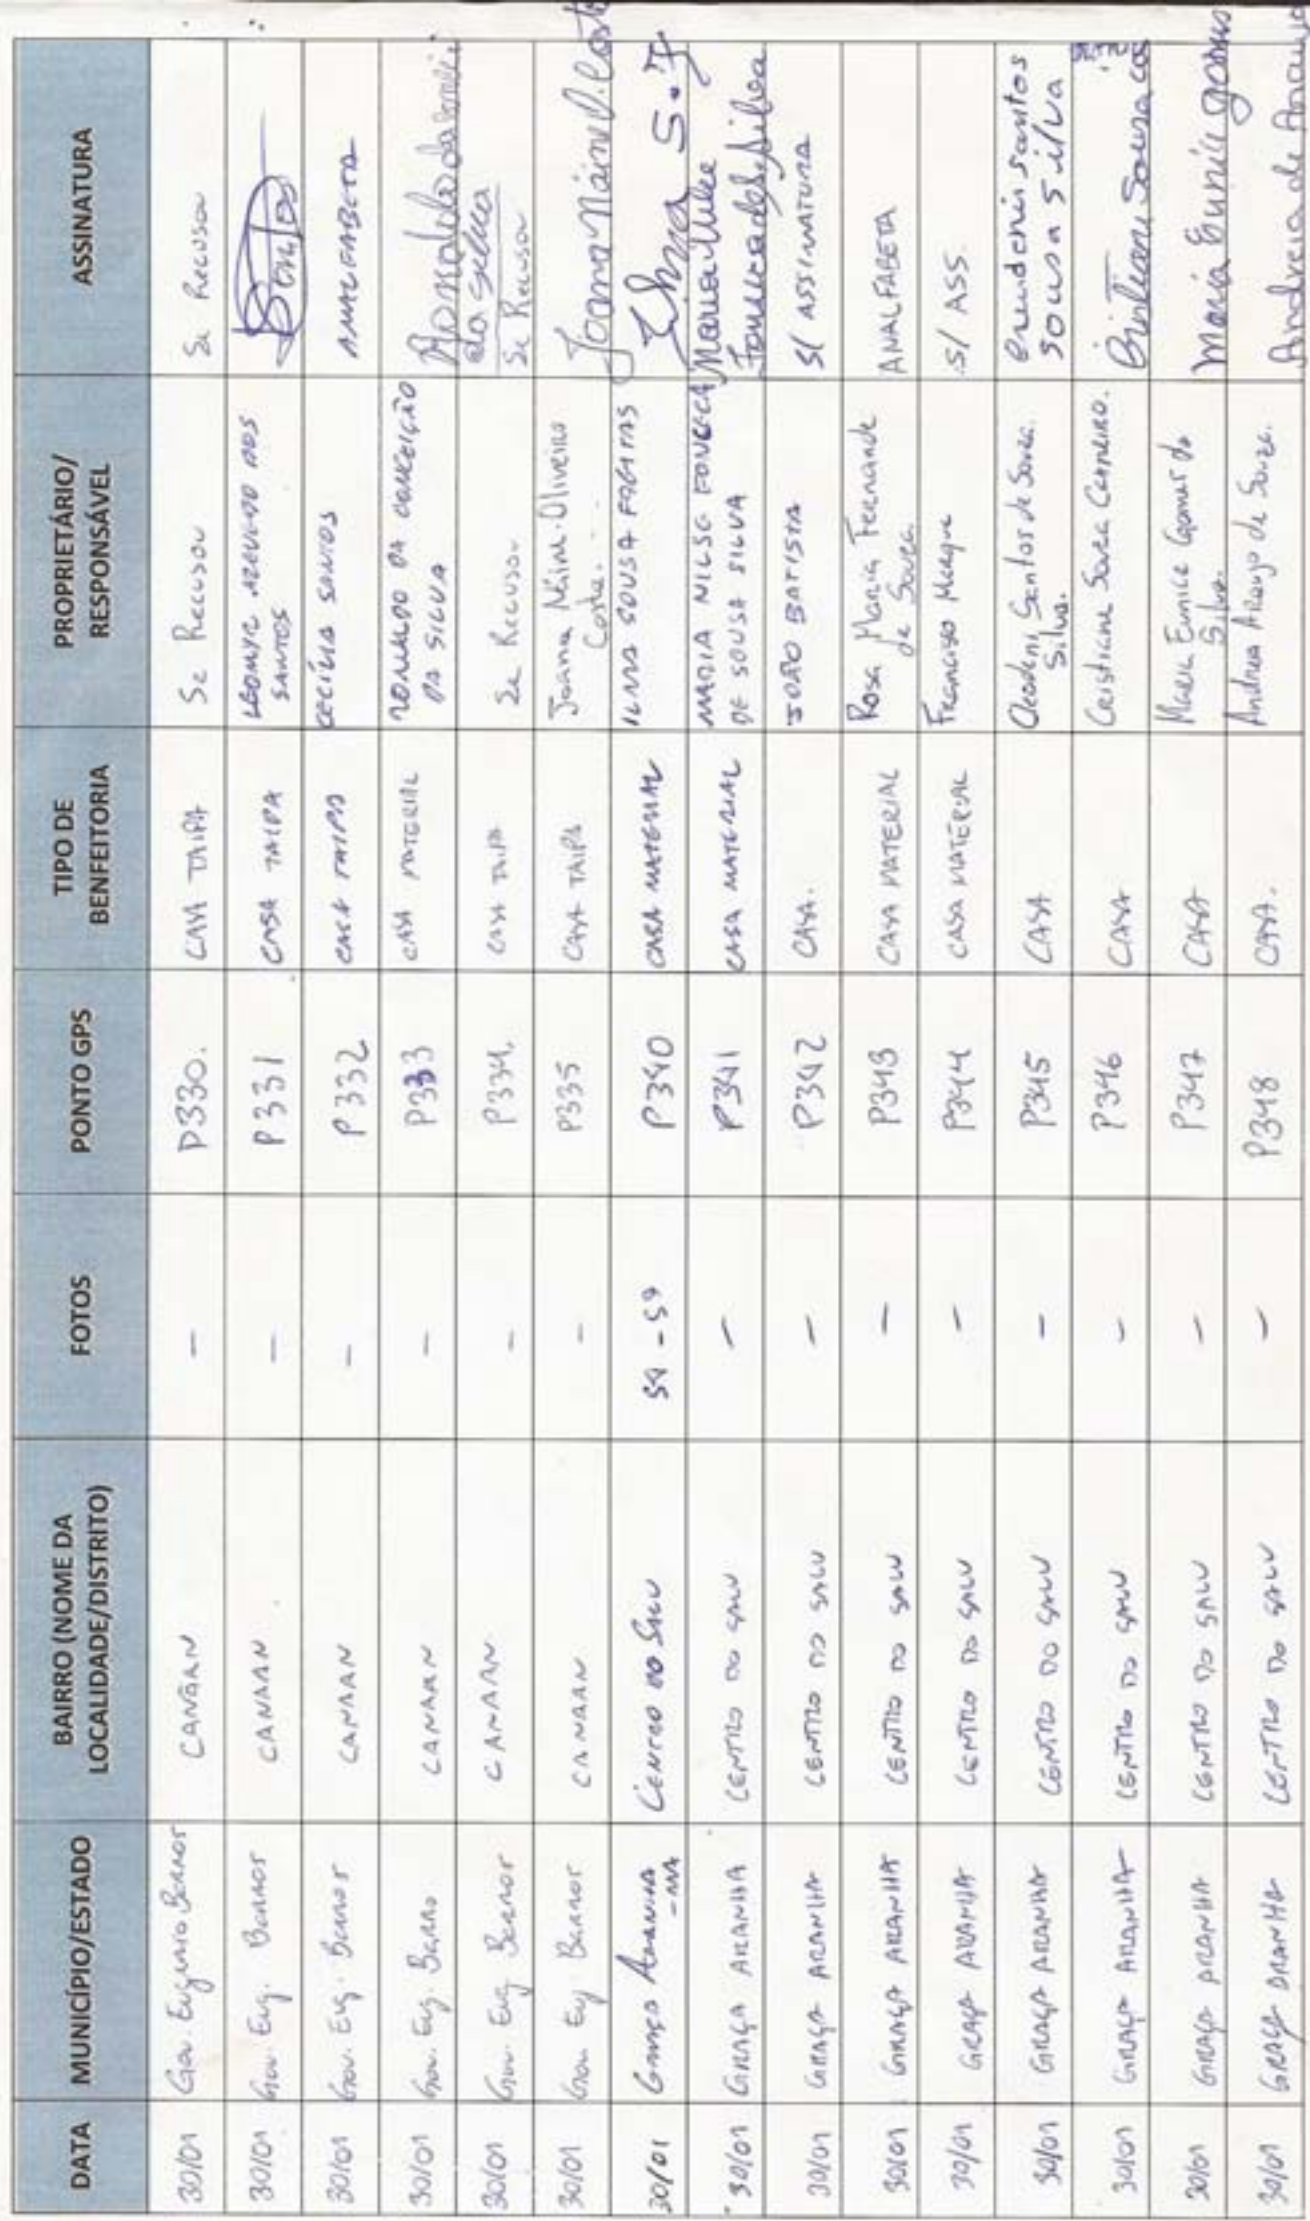 DATA MUNICÍPIO/ESTADO BAIRRO (NOME DA LOCALIDADE/DISTRITO) FOTOS PONTO GPS TIPO DE BENFEITORIA PROPRIETÁRIO/ RESPONSÁVEL ASSINATURA
30/01 Gov. Eugenio Barros CANAAN - P330. CASA TAIPA Se Recusou Se Recusou
30/01 Gov. Eug. Barros CANAAN - P331 CASA TAIPA AZEVEDO DOS SANTOS
30/01 Gov. Eug. Barros CANAAN - P332 CASA TAIPA CECÍLIA SANTOS ANALFABETA
30/01 Gov. Eug. Barro CANAAN - P333 CASA MATERIAL RONALDO DA CONCEIÇÃO DA SILVA Ronaldo da
30/01 Gov. Eug. Barros CANAAN - P334. CASA TAIPA Se Recusou Se Recusou
30/01 Gov. Eug. Barros CANAAN - P335 CASA TAIPA Joanna Náira Oliveira Costa. Joanna Náira O. Costa
30/01 Graça Aranha - MA Centro do Salu 59 - 59 P340 CASA MATERIAL ILMA SOUSA FREITAS Ilma S. F
30/01 GRAÇA ARANHA CENTRO DO SALU - P341 CASA MATERIAL MARIA NILSE FONCECA DE SOUSA SILVA Maria Nilse Fonceca de S. Silva
30/01 GRAÇA ARANHA CENTRO DO SALU - P342 CASA. JOÃO BATISTA S/ ASSINATURA
30/01 GRAÇA ARANHA CENTRO DO SALU - P343 CASA MATERIAL Rosa Maria Fernande de Souza ANALFABETA
30/01 GRAÇA ARANHA CENTRO DO SALU - P344 CASA MATERIAL Francisco S/ ASS.
30/01 GRAÇA ARANHA CENTRO DO SALU - P345 CASA Santos de Souza Silva. santos sousa silva
30/01 GRAÇA ARANHA CENTRO DO SALU - P346 CASA Cristiane Souza Carneiro. Sousa
30/01 GRAÇA ARANHA CENTRO DO SALU - P347 CASA Maria Eunice Gomes da Silva. Maria Eunice gomes
30/01 GRAÇA ARANHA CENTRO DO SALU - P348 CASA. Andrea Araujo de Souza. Andreia de Araujo